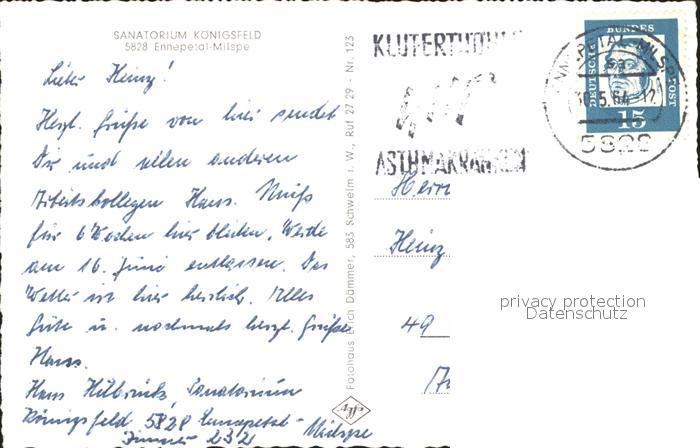 SANATORIUM KÖNIGSFELD
5828 Ennepetal-Milspe
Lieber Heinz!
Herzl. Grüße von hier sendet
Dir und allen anderen
Arbeitskollegen Hans. Muß
für 6 Wochen hier bleiben. Werde
am 16. Juni entlassen. Das
Wetter ist hier herrlich. Alles
Gute u. nochmals herzl. Grüße
Hans.
Hans Hilbrink, Sanatorium
Königsfeld 5828 Ennepetal-
Milspe
Zimmer 232
Fotohaus Erich Dümmer, 583 Schwelm i. W., Ruf 27 29 - Nr. 123
Agfa
KLUTERTHÖHLE
ASTHMAKRANKEN
DEUTSCHE BUNDESPOST
15
ENNEPETAL-MILSPE
sa
5.64-17
5828
Herrn
Heinz
49
privacy protection
Datenschutz